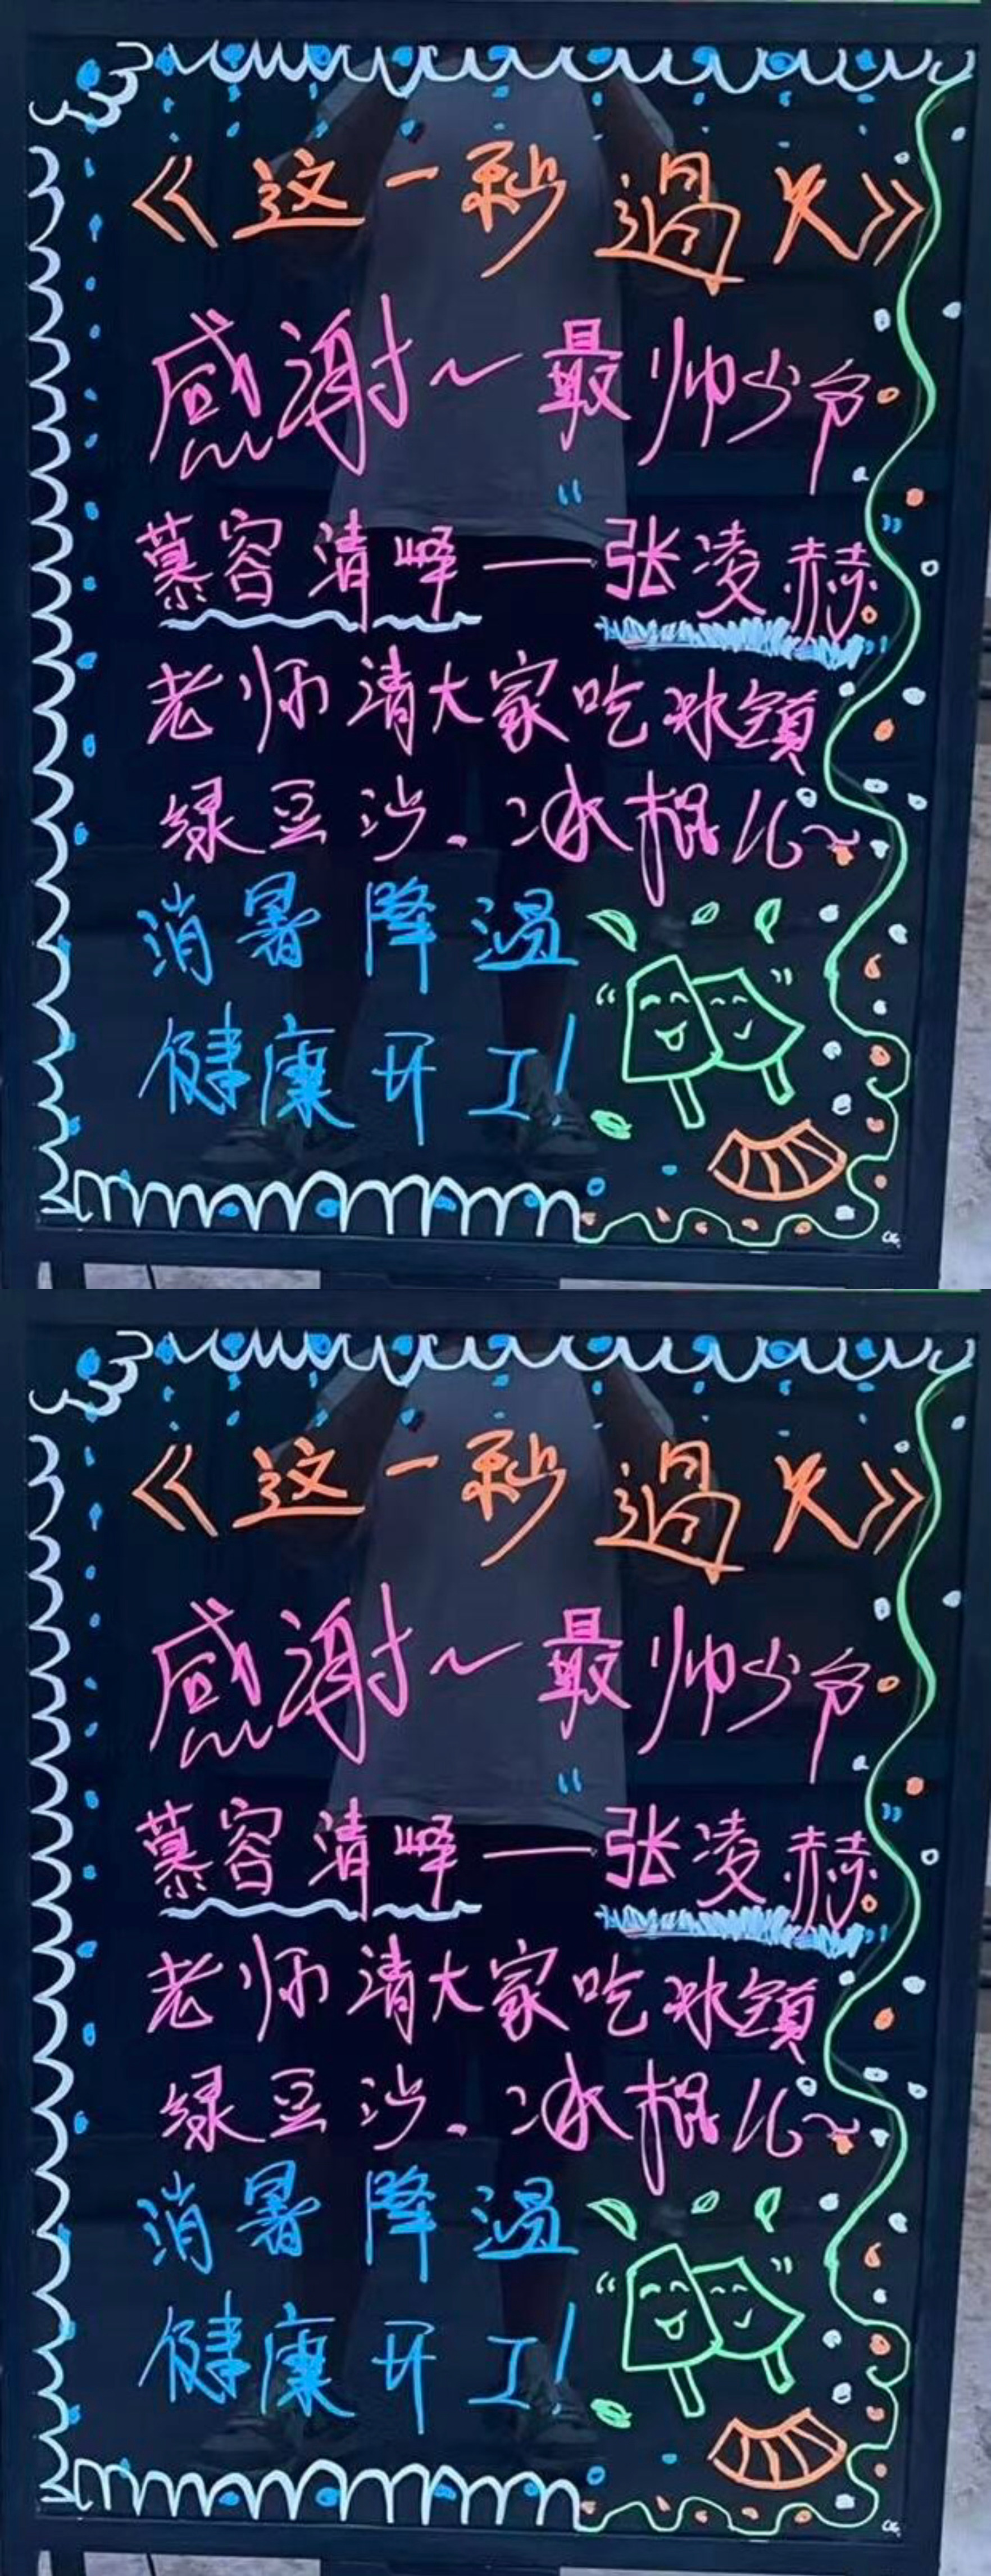 《这一秒過火》
感谢~最帅少爷
慕容清峄——"张凌赫"
老师请大家吃冰镇
绿豆沙.冰棍儿~
消暑降温
健康开工!
《这一秒過火》
感谢~最帅少爷
慕容清峄——"张凌赫"
老师请大家吃冰镇
绿豆沙.冰棍儿~
消暑降温
健康开工!